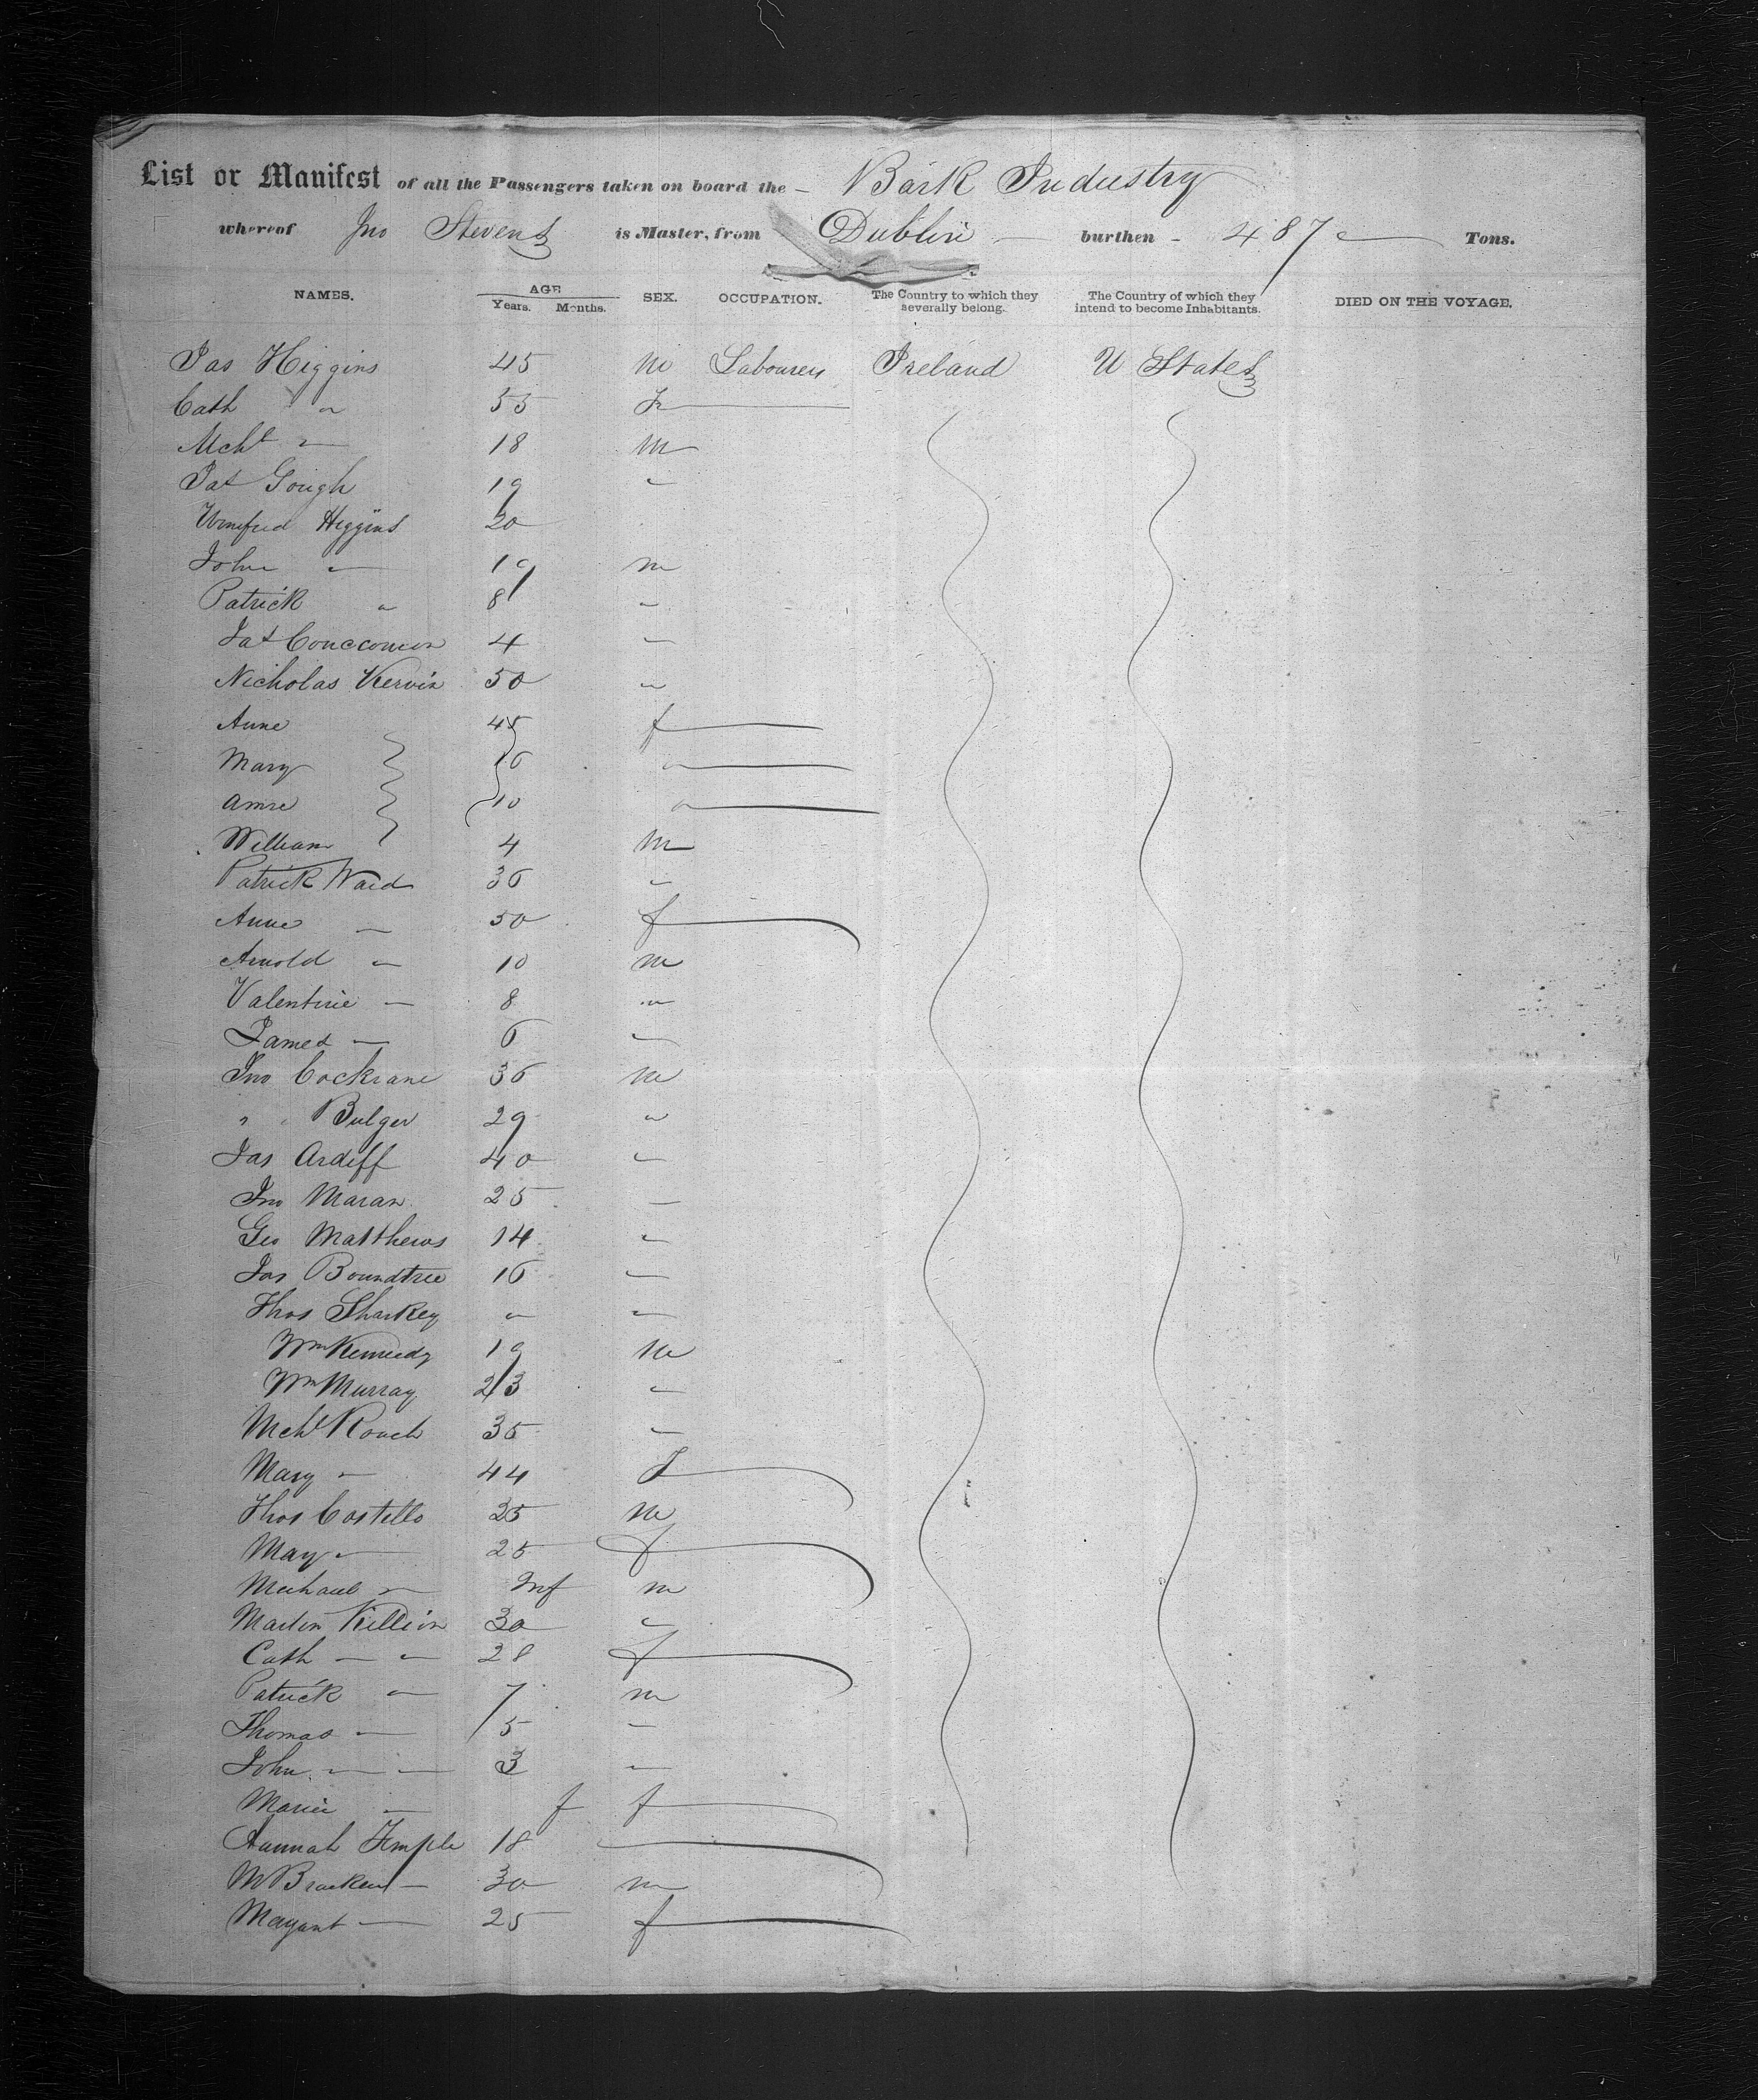 List or Manifest of all the Passengers taken on board the — Bark Industry
whereof Jno Stevens is Master, from Dublin — burthen - 487 — Tons.
NAMES. AGE SEX. OCCUPATION. The Country to which they The Country of which they DIED ON THE VOYAGE.
Years. Months. severally belong. intend to become Inhabitants.
Jas Higgins 45 m Labourers Ireland U States
Cath " 55 F
Mchl " 18 m
Pat Gough 19 "
Winefred Higgins 20
John " 19 m
Patrick " 8 "
4 "
Nicholas Kervin 50 "
Anne 45 f
Mary 16 "
Anne 10 "
William 4 m
Patrick Ward 36 "
Anne " 50 f
Arnold " 10 m
Valentine " 8 "
James " 6 "
Jno Cockrane 36 m
" " Bulger 29 "
Jas Ardiff 40 "
Jno Maran 25 "
Geo Matthews 14 "
Jas Boundtree 16 "
Thos Sharkey " "
Wm Kennedy 19 m
Wm Murray 23 "
Mchl Roach 35 "
Mary " 44 F
Thos Costello 25 m
May " 25 f
Michael " Inf m
Martin Killion 30 "
Cath " " 28 f
Patrick " 7 m
Thomas " 5 "
John " " 3 "
Maria " f f
Hannah Temple 18
M Bracken 30 m
25 f